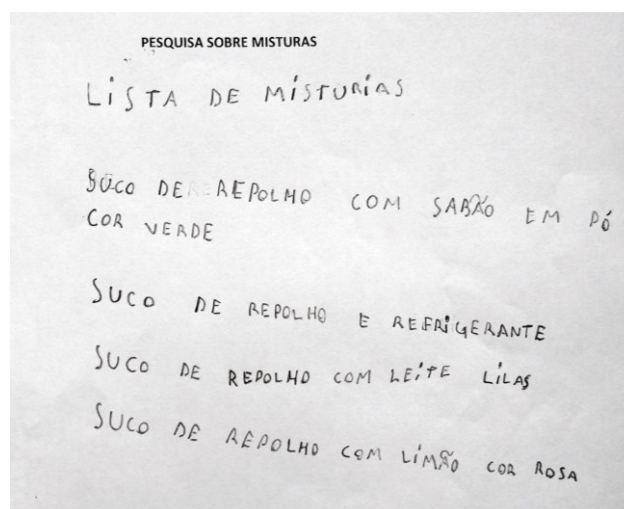 PESQUISA SOBRE MISTURAS
LISTA DE MISTURIAS
SUCO DE REPOLHO COM SABÃO EM PÓ
COR VERDE
SUCO DE REPOLHO E REFRIGERANTE
SUCO DE REPOLHO COM LEITE LILAS
SUCO DE REPOLHO COM LIMÃO COR ROSA